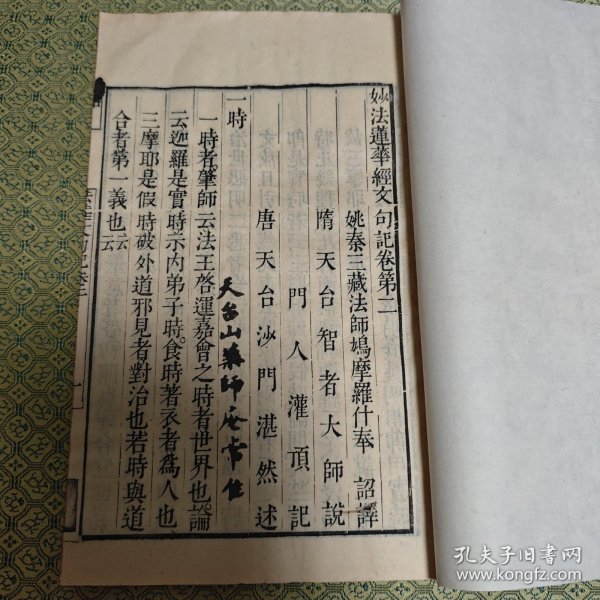 妙法蓮華經文句記卷第二
姚秦三藏法師鳩摩羅什奉　詔譯
隋天台智者大師說
門人灌頂記
唐天台沙門湛然述
天台山藥師庵常住
一時
一時者肇師云法王啓運嘉會之時者世界也論
云迦羅是實時示内弟子時食時著衣者爲人也
三摩耶是假時破外道邪見者對治也若時與道
合者第一義也云云
孔夫子旧书网
www.kongfz.com